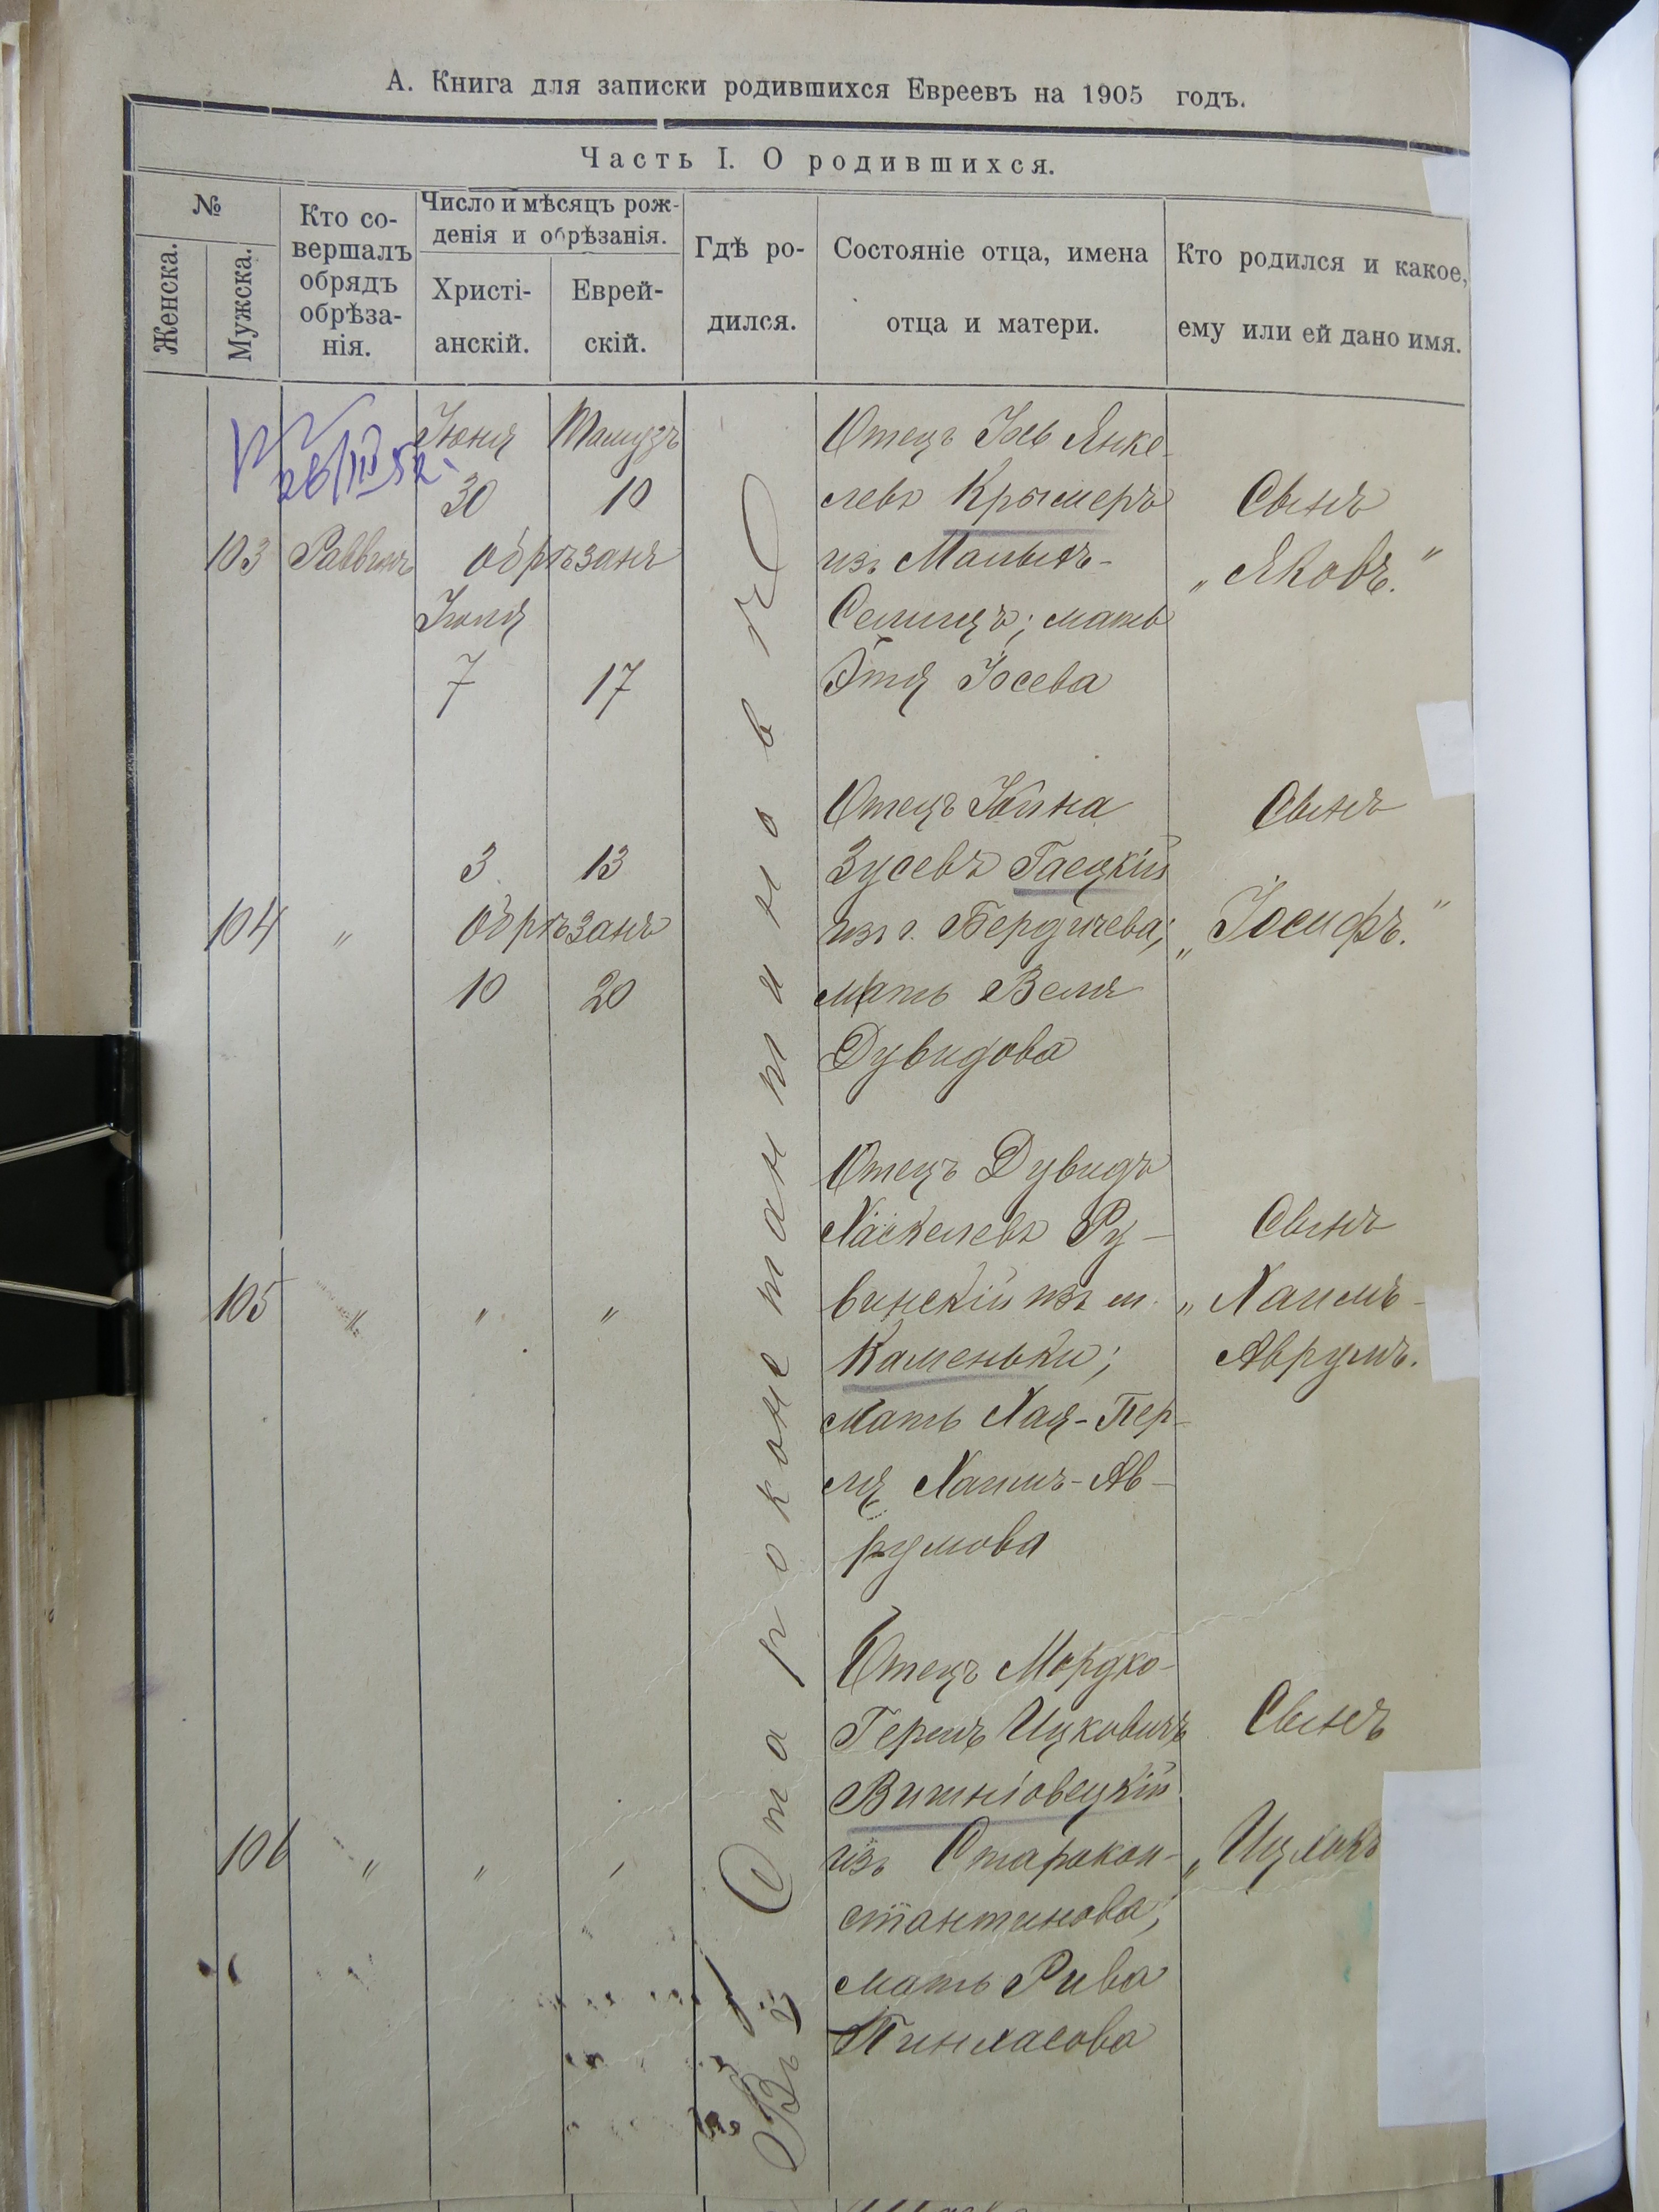 А. Книга для записки родившихся Евреевъ на 1905 годъ.
Часть I. О родившихся.
№
Женска.
Мужска.
Кто со-
вершалъ
обрядъ
обрѣза-
нія.
Число и мѣсяцъ рож-
денія и обрѣзанія.
Христі-
анскій.
Еврей-
скій.
Гдѣ ро-
дился.
Состояніе отца, имена
отца и матери.
Кто родился и какое,
ему или ей дано имя.
26/III 52
Въ г. Староконстантиновѣ
103
Раввинъ
Іюня
Тамузъ
30
10
обрѣзанъ
Іюля
7
17
Отецъ Іось Янке-
левъ Крымеръ
изъ Малыхъ-
Селищъ; мать
Этя Іосева
Сынъ
„Яковъ.“
104
„
3
13
Обрѣзанъ
10
20
Отецъ Юкна
Зусевъ Гаецкій
изъ г. Бердичева;
мать Веля
Дувидова
Сынъ
„Іосифъ.“
105
„
„
„
Отецъ Дувидъ
Хаскелевъ Ру-
винскій изъ м.
Каменьки;
мать Хая-Пер-
ля Хаимъ-Ав-
румова
Сынъ
„Хаимъ-
Аврумъ.
106
„
„
„
Отецъ Мордко-
Гершъ Ицковичъ
Вишніовецкій
изъ Старокон-
стантинова;
мать Рива
Пинхасова
Сынъ
„Ицхокъ